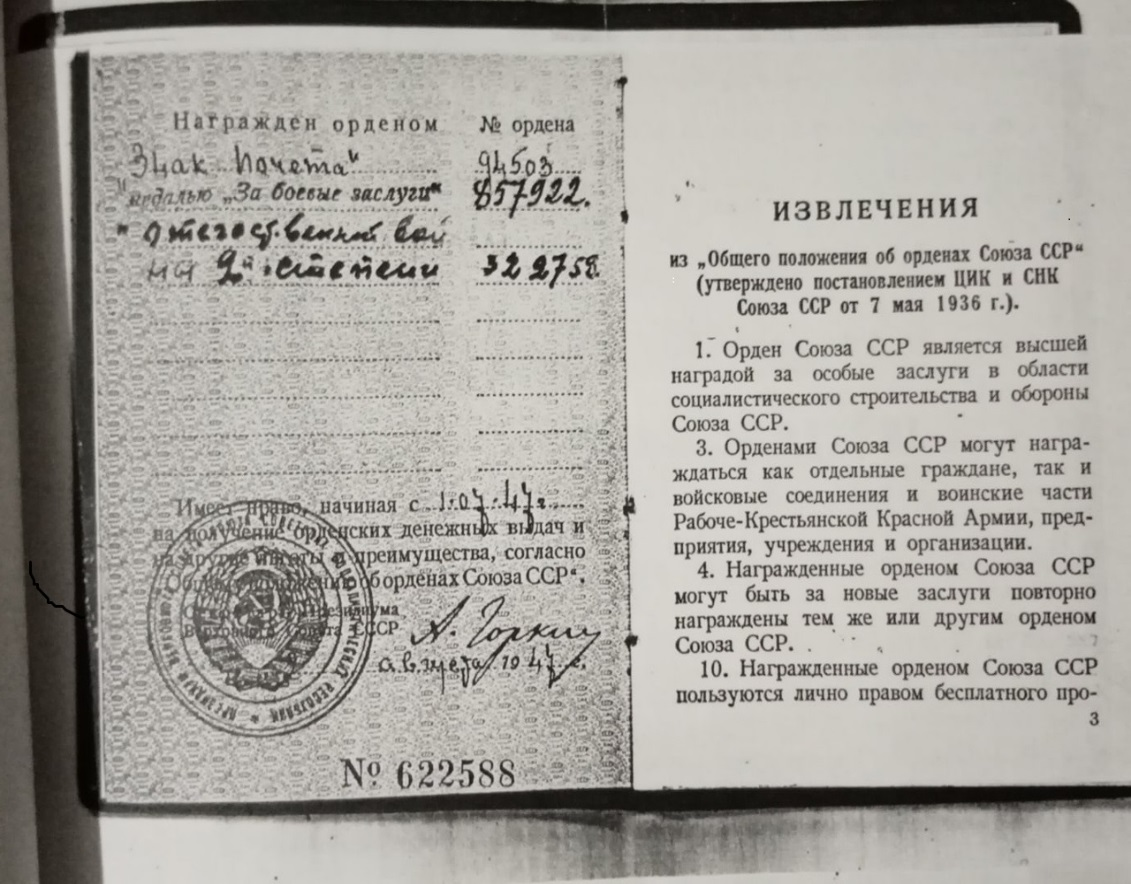 Награжден орденом № ордена
„Знак Почета“ 94503
медалью „За боевые заслуги“ 857922.
" Отечественной вой
ны 2й степени 322758.
Имеет право, начиная с 1.07.47г.
на получение орденских денежных выдач и
на другие льготы и преимущества, согласно
„Общего положения об орденах Союза ССР“.
Секретарь Президиума
Верховного Совета СССР А. Горкин
августа 1947 г.
№ 622588
ИЗВЛЕЧЕНИЯ
из „Общего положения об орденах Союза ССР“
(утверждено постановлением ЦИК и СНК
Союза ССР от 7 мая 1936 г.).
1. Орден Союза ССР является высшей
наградой за особые заслуги в области
социалистического строительства и обороны
Союза ССР.
3. Орденами Союза ССР могут награ-
ждаться как отдельные граждане, так и
войсковые соединения и воинские части
Рабоче-Крестьянской Красной Армии, пред-
приятия, учреждения и организации.
4. Награжденные орденом Союза ССР
могут быть за новые заслуги повторно
награждены тем же или другим орденом
Союза ССР.
10. Награжденные орденом Союза ССР
пользуются лично правом бесплатного про-
3